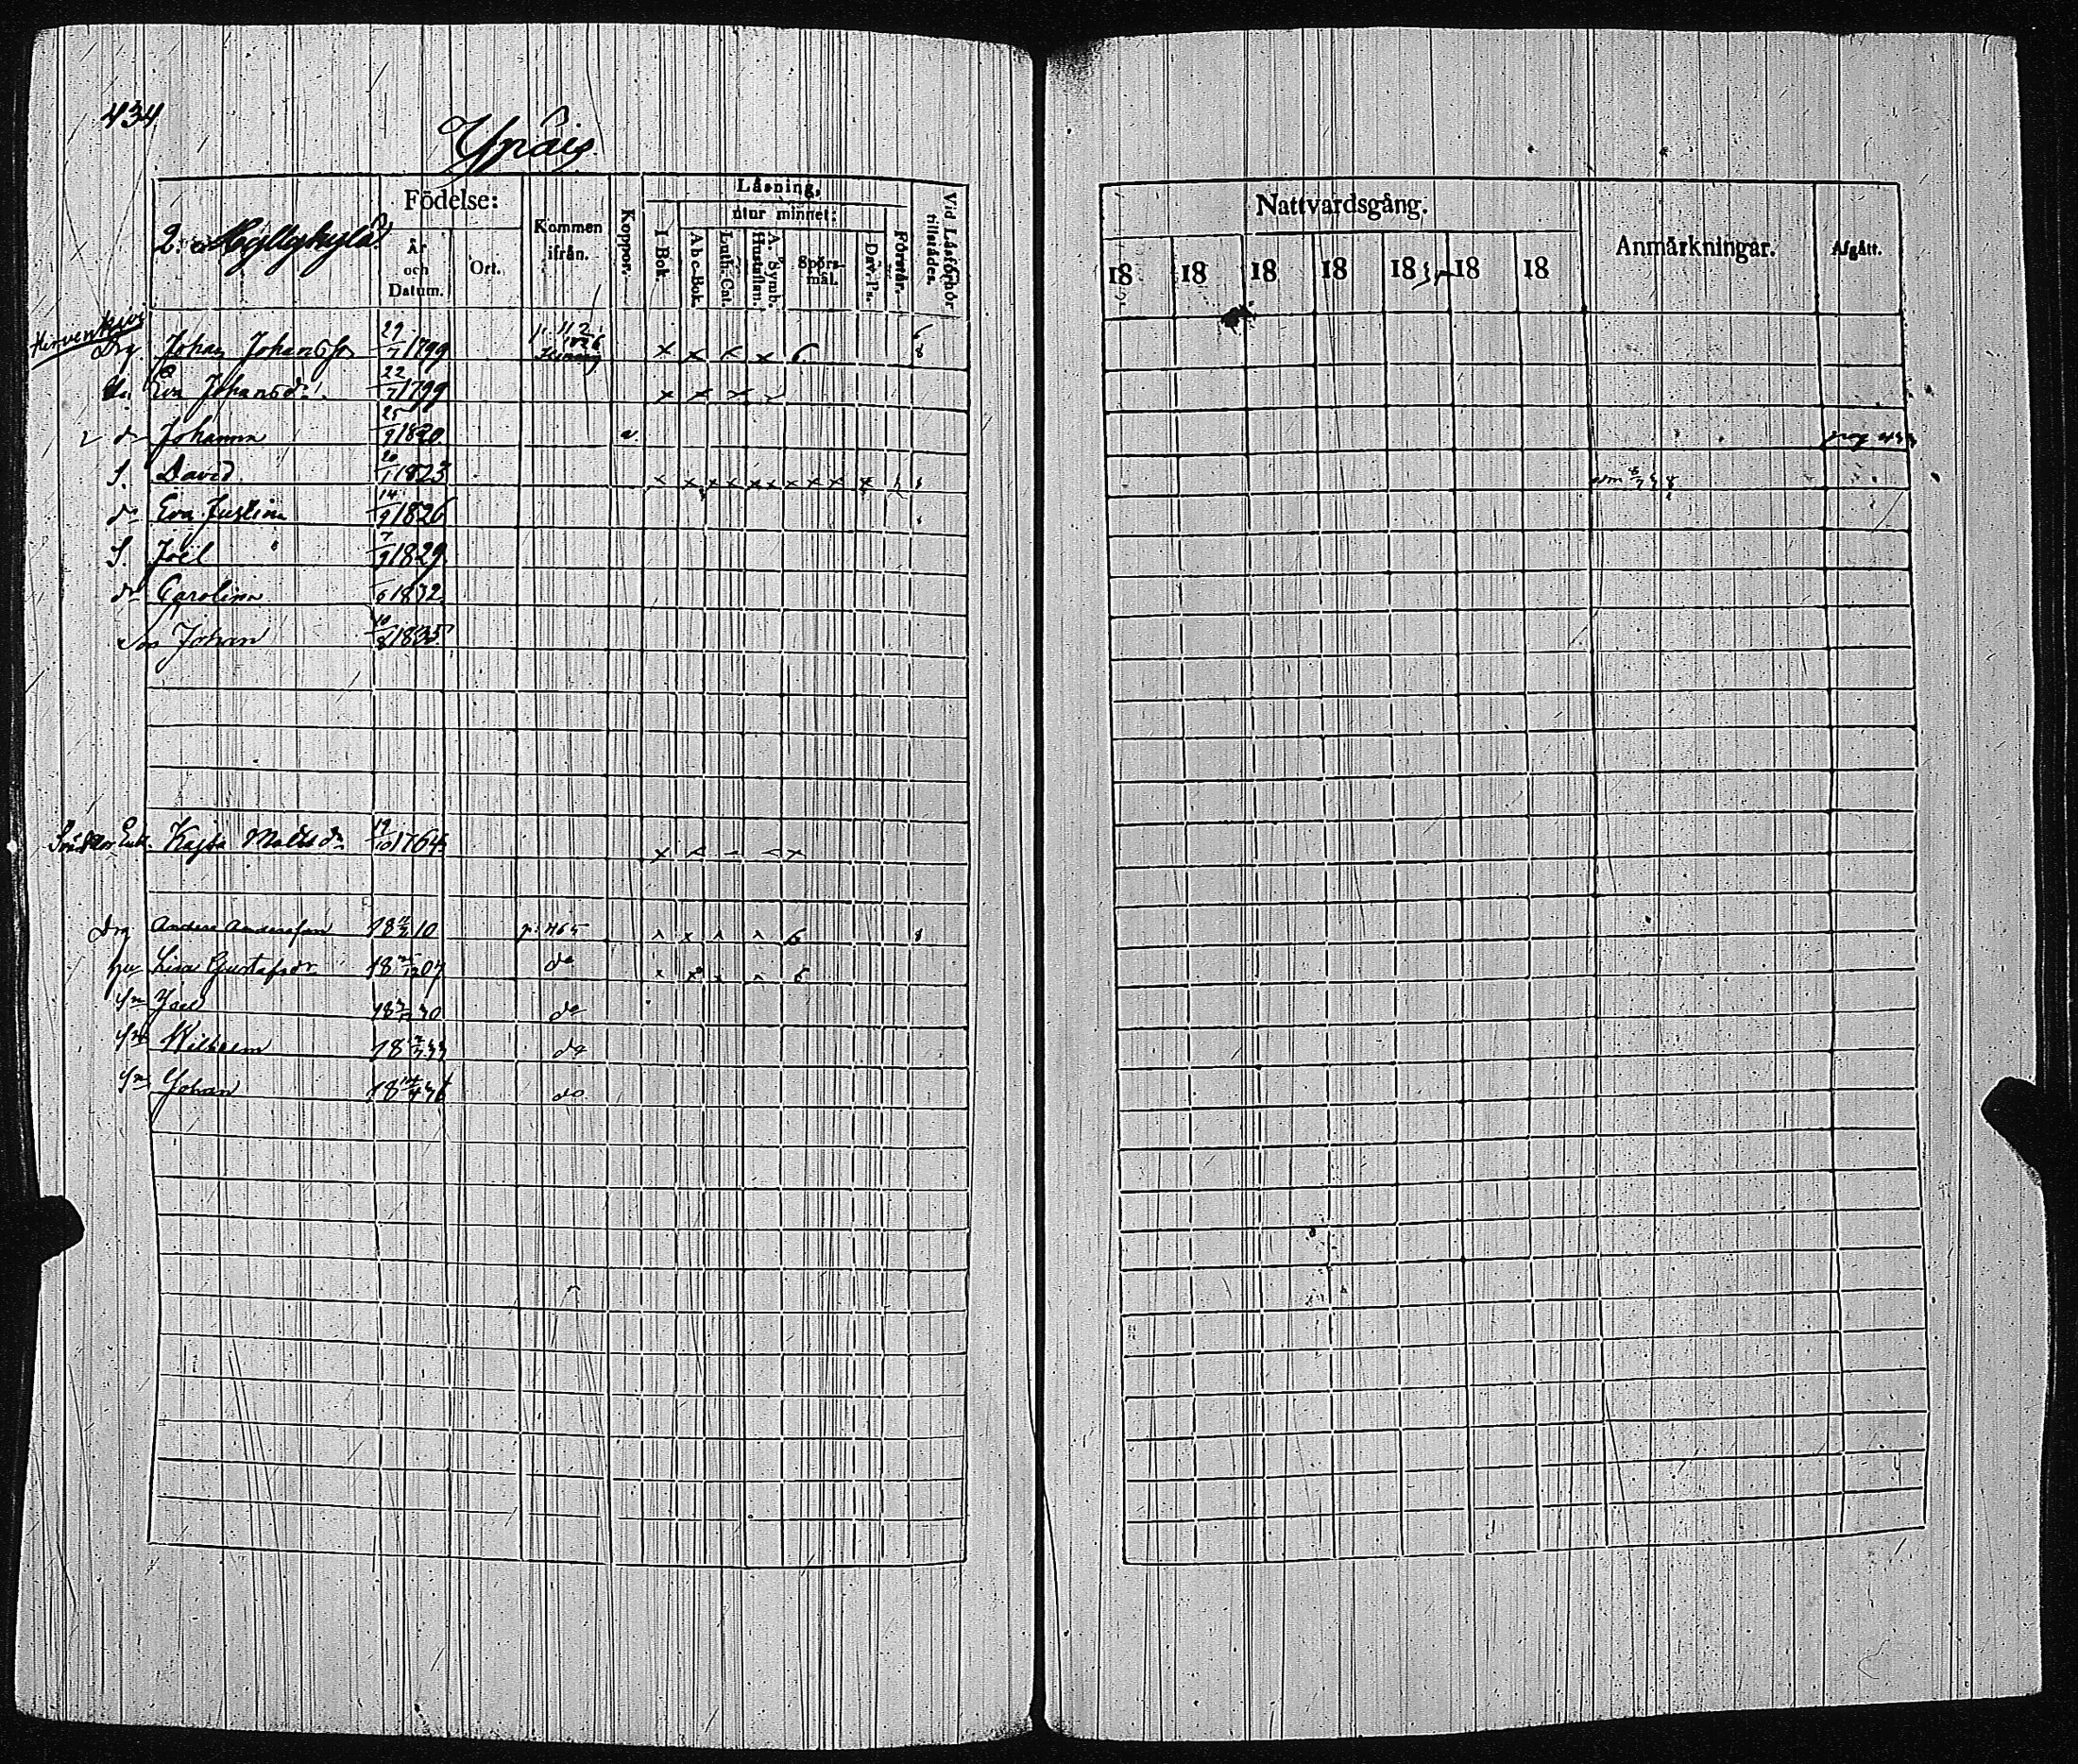 434
Ypäis
Födelse:
Kommen ifrån.
Koppor.
Läsning,
utur minnet:
I Bok.
Abc-Bok.
Luth. Cat.
Hustaflan.
A. Symb.
Spörs-mål.
Dav. Ps.
Förstår.
Vid Läsförhör tillstädes.
År och Datum.
Ort.
2.
Drg. Johan Johansson 29/7 1799 p. 112
Eva Johansdr. 22/7 1799
dr Johanna 25/9 1820
S. David 20/1 1823
dr Eva Justina 14/9 1826
S. Joel 7/9 1829
dr Carolina 1832
Son Johan 10/8 1835
Enk. Kajsa Mattsdr 19/10 1764
Drg Anders Andersson 18 10 p. 465
hu Lisa Gustafsdr 18 07 do
Sn Joel 18 30 do
Sn Wilhelm 18 33 do
Sn Johan 18 14/4 36 do
Nattvardsgång.
Anmärkningar.
Afgått.
18 18 18 18 18 18 18
pag 433